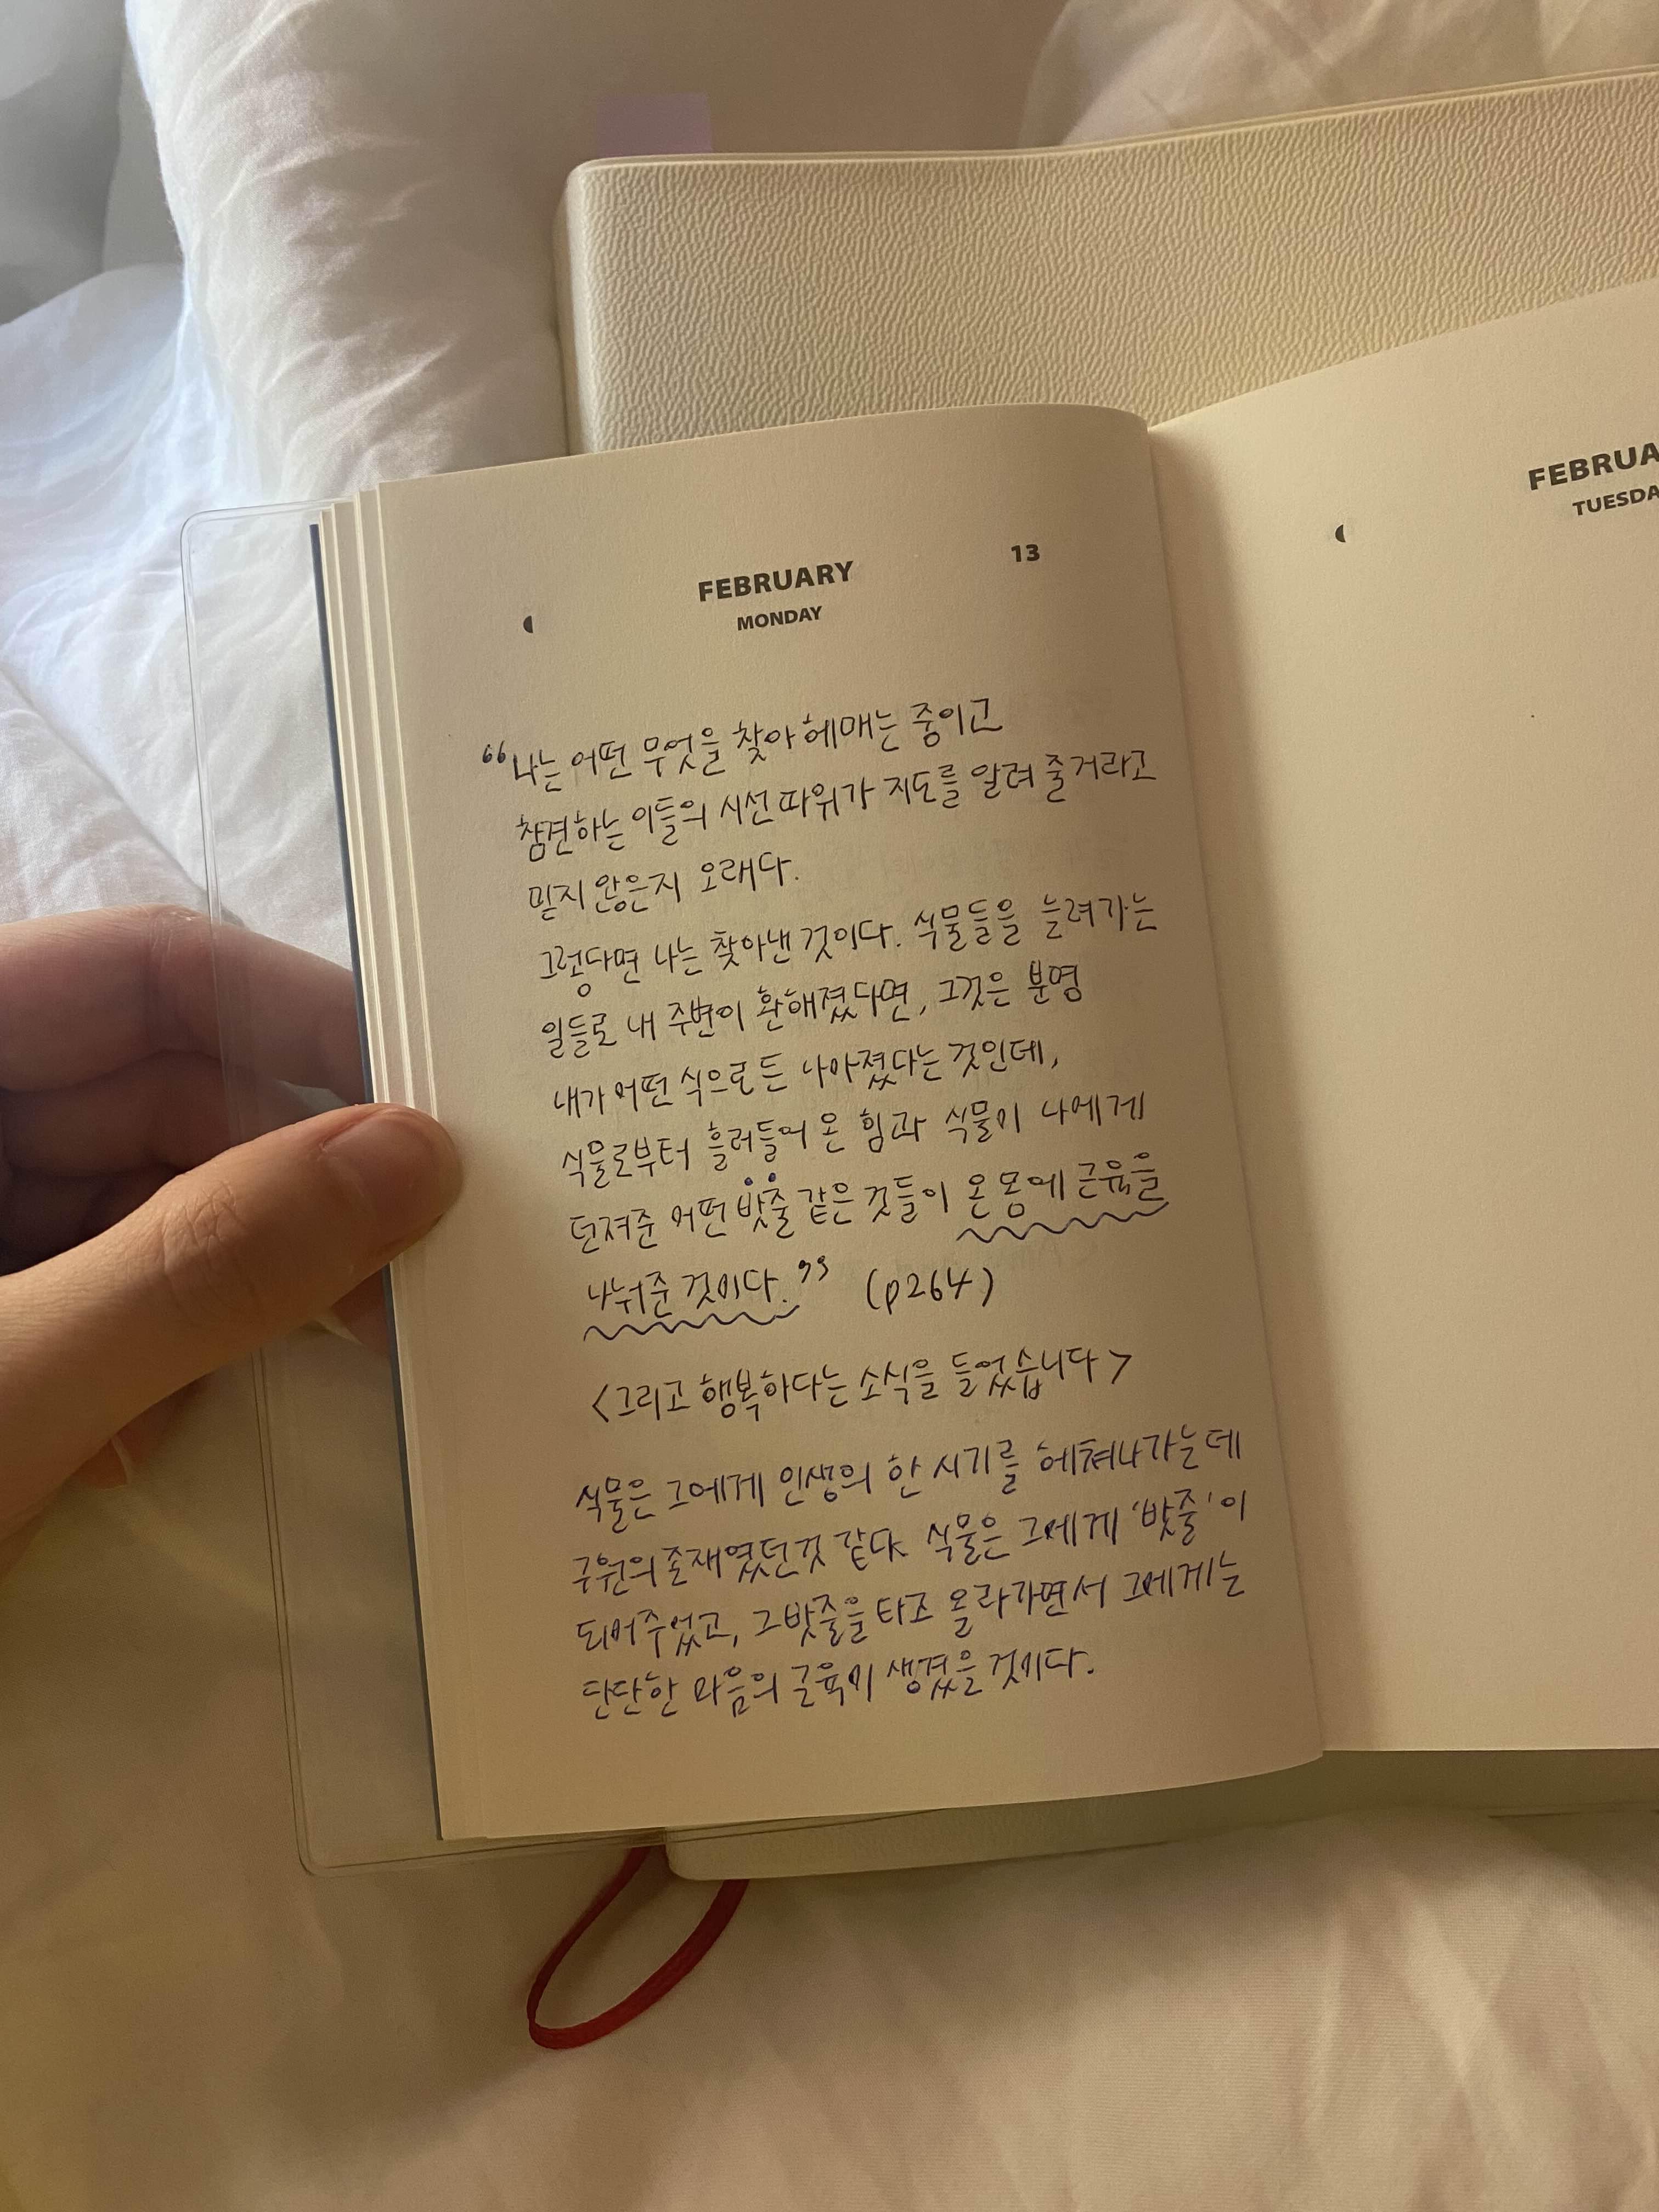 FEBRUARY
13
MONDAY
“나는 어떤 무엇을 찾아 헤매는 중이고
참견하는 이들의 시선 따위가 지도를 알려 줄거라고
믿지 않은지 오래다.
그렇다면 나는 찾아낸 것이다. 식물들을 늘려가는
일들로 내 주변이 환해졌다면, 그것은 분명
내가 어떤 식으로든 나아졌다는 것인데,
식물로부터 흘러들어 온 힘과 식물이 나에게
던져준 어떤 밧줄 같은 것들이 온 몸에 근육을
나눠준 것이다.” (p264)
<그리고 행복하다는 소식을 들었습니다>
식물은 그에게 인생의 한 시기를 헤쳐나가는데
구원의 존재였던것 같다. 식물은 그에게 '밧줄'이
되어주었고, 그 밧줄을 타고 올라가면서 그에게는
단단한 마음의 근육이 생겼을 것이다.
FEBRUA
TUESDA